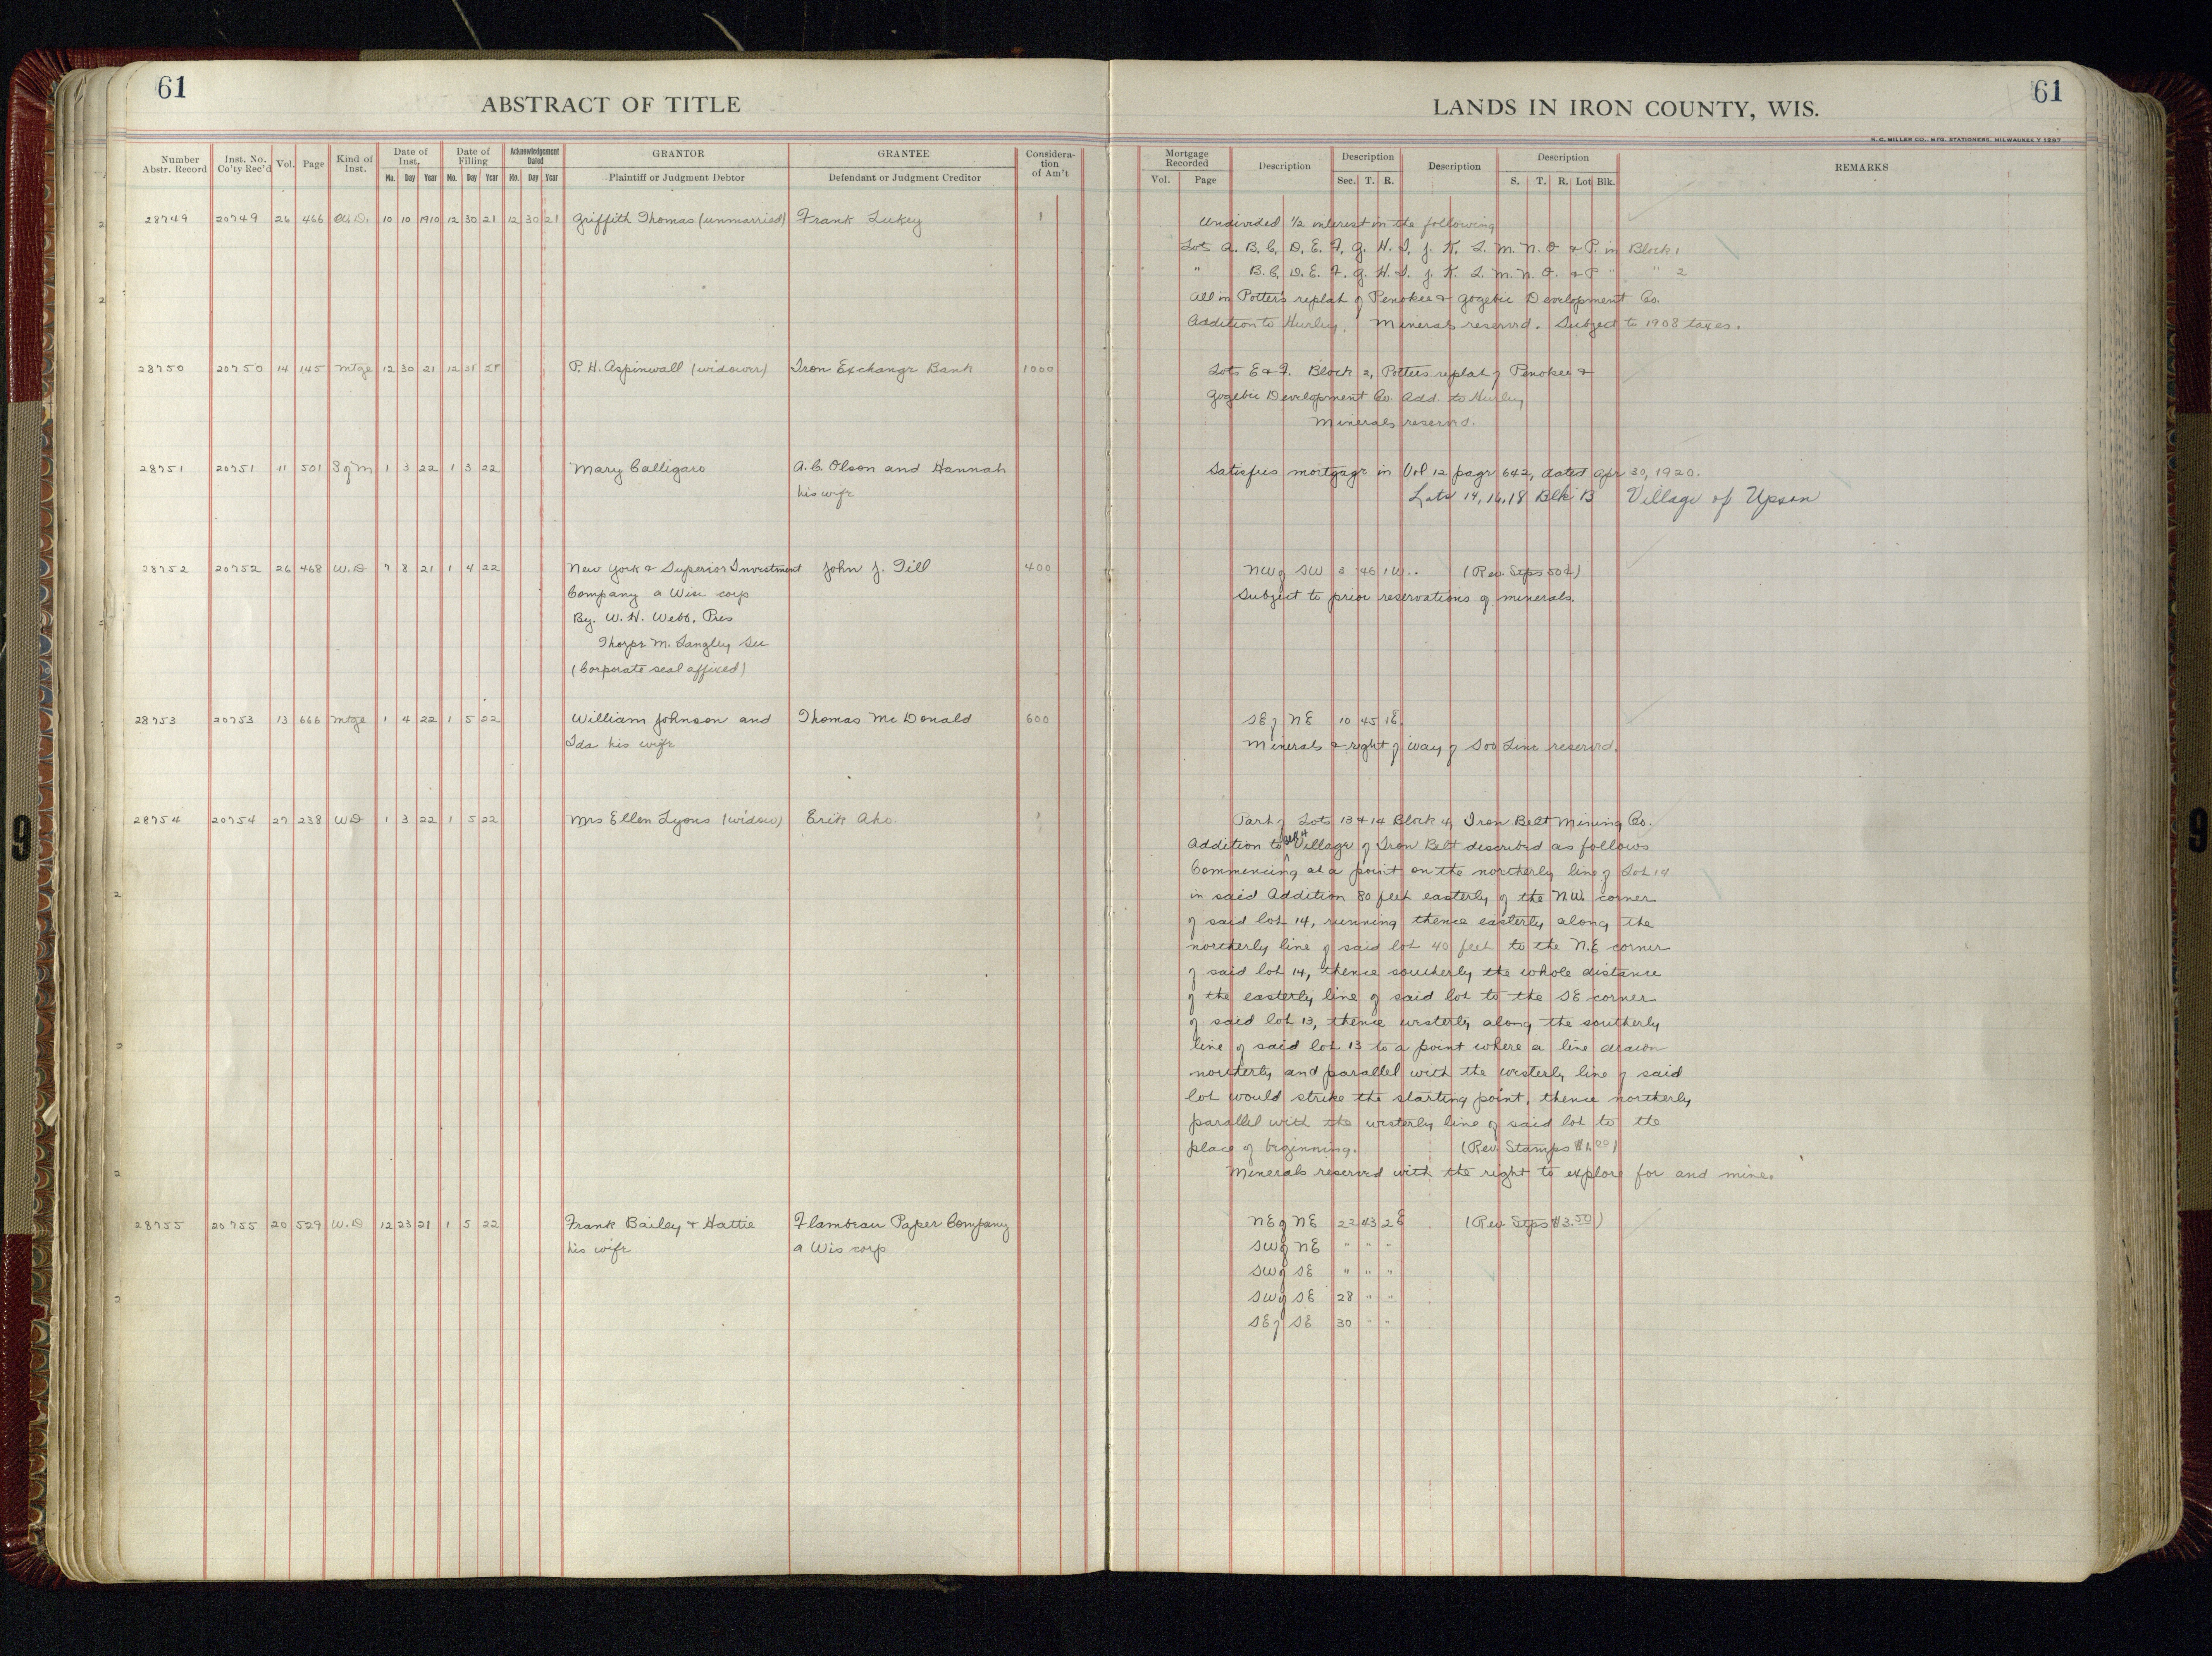 61
61
ABSTRACT OF TITLE
LANDS IN IRON COUNTY, WIS.
S. C. MILLER CO., MFG. STATIONERS, MILWAUKEE
Number Abstr. Record
Inst. No. Co'ty Rec'd
Vol.
Page
Kind of Inst.
Date of Inst.
Mo. Day Year
Date of Filiing
Mo. Day Year
Acknowledgement Dated
Mo. Day Year
GRANTOR
Plaintiff or Judgment Debtor
GRANTEE
Defendant or Judgment Creditor
Considera-
tion
of Am't
Mortgage Recorded
Vol. Page
Description
Description
Sec. T. R.
Description
Description
S. T. R. Lot Blk.
REMARKS
28749 20749 26 466 W.D. 10 10 1910 12 30 21 12 30 21 Griffith Thomas (unmarried) Frank Lukey 1 Undivided 1/2 interest in the following
Lots A. B. C. D. E. F. G. H. I. J. K. L. M. N. O & P. in Block 1
" B. C. D. E. F. G. H. I. J. K. L. M. N. O. & P " " 2
All in Potter's replat of Penokee & Gogebic Development Co.
Addition to Hurley. Minerals reserved. Subject to 1908 taxes.
28750 20750 14 145 Mtge 12 30 21 12 31 21 P. H. Aspinwall (widower) Iron Exchange Bank 1000 Lots E & F. Block 2, Potters replat of Penokee &
Gogebic Development Co. Add. to Hurley
Minerals reserved.
28751 20751 11 501 S of M 1 3 22 1 3 22 Mary Calligaro A. C. Olson and Hannah Satisfies mortgage in Vol 12 page 642, dated Apr 30, 1920.
his wife Lots 14, 16, 18 Blk B Village of Upson
28752 20752 26 468 W.D 7 8 21 1 4 22 New York & Superior Investment John J. Till 400 NW of SW 3 46 1 W.. (Rev Stps 50¢)
Company a Wisc corp Subject to prior reservations of minerals.
By. W. H. Webb, Pres
Thorpe M. Langley, Sec
(Corporate seal affixed)
28753 20753 13 666 Mtge 1 4 22 1 5 22 William Johnson and Thomas McDonald 600 SE of NE 10 45 1E.
Ida his wife Minerals & right of way of Soo Line reserved.
28754 20754 27 238 WD 1 3 22 1 5 22 Mrs Ellen Lyons (widow) Erik Aho 1 Part of Lots 13 & 14 Block 4, Iron Belt Mining Co.
Addition to Village of Iron Belt described as follows
Commencing at a point on the northerly line of Lot 14
in said Addition 80 feet easterly of the NW. corner
of said lot 14, running thence easterly along the
northerly line of said lot 40 feet to the N.E corner
of said lot 14, thence southerly the whole distance
of the easterly line of said lot to the SE corner
of said lot 13, thence westerly along the southerly
line of said lot 13 to a point where a line drawn
northerly and parallel with the westerly line of said
lot would strike the starting point, thence northerly
parallel with the westerly line of said lot to the
place of beginning. (Rev. Stamps $1.00)
Minerals reserved with the right to explore for and mine.
28755 20755 20 529 W.D 12 23 21 1 5 22 Frank Bailey & Hattie Flambeau Paper Company NE of NE 22 43 2E (Rev Stps $3.50)
his wife a Wis corp SW of NE " " "
SW of SE " " "
SW of SE 28 " "
SE of SE 30 " "
9
9